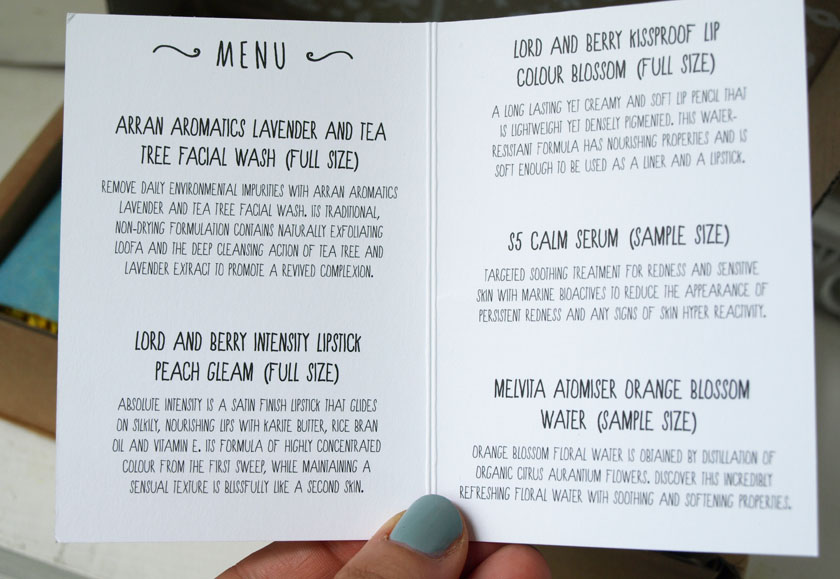 MENU
ARRAN AROMATICS LAVENDER AND TEA
TREE FACIAL WASH (FULL SIZE)
REMOVE DAILY ENVIRONMENTAL IMPURITIES WITH ARRAN AROMATICS
LAVENDER AND TEA TREE FACIAL WASH. ITS TRADITIONAL,
NON-DRYING FORMULATION CONTAINS NATURALLY EXFOLIATING
LOOFA AND THE DEEP CLEANSING ACTION OF TEA TREE AND
LAVENDER EXTRACT TO PROMOTE A REVIVED COMPLEXION.
LORD AND BERRY INTENSITY LIPSTICK
PEACH GLEAM (FULL SIZE)
ABSOLUTE INTENSITY IS A SATIN FINISH LIPSTICK THAT GLIDES
ON SILKILY, NOURISHING LIPS WITH KARITE BUTTER, RICE BRAN
OIL AND VITAMIN E. ITS FORMULA OF HIGHLY CONCENTRATED
COLOUR FROM THE FIRST SWEEP, WHILE MAINTAINING A
SENSUAL TEXTURE IS BLISSFULLY LIKE A SECOND SKIN.
LORD AND BERRY KISSPROOF LIP
COLOUR BLOSSOM (FULL SIZE)
A LONG LASTING YET CREAMY AND SOFT LIP PENCIL THAT
IS LIGHTWEIGHT YET DENSELY PIGMENTED. THIS WATER-
RESISTANT FORMULA HAS NOURISHING PROPERTIES AND IS
SOFT ENOUGH TO BE USED AS A LINER AND A LIPSTICK.
S5 CALM SERUM (SAMPLE SIZE)
TARGETED SOOTHING TREATMENT FOR REDNESS AND SENSITIVE
SKIN WITH MARINE BIOACTIVES TO REDUCE THE APPEARANCE OF
PERSISTENT REDNESS AND ANY SIGNS OF SKIN HYPER REACTIVITY.
MELVITA ATOMISER ORANGE BLOSSOM
WATER (SAMPLE SIZE)
ORANGE BLOSSOM FLORAL WATER IS OBTAINED BY DISTILLATION OF
ORGANIC CITRUS AURANTIUM FLOWERS. DISCOVER THIS INCREDIBLY
REFRESHING FLORAL WATER WITH SOOTHING AND SOFTENING PROPERTIES.